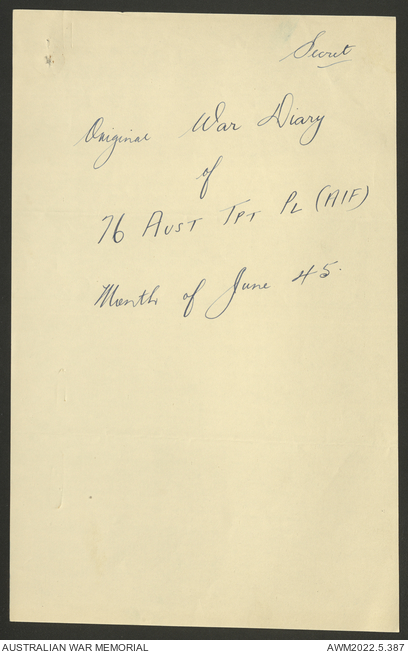 Secret
Original War Diary
of
76 Aust Tpt Pl (AIF)
Month of June 45.
AUSTRALIAN WAR MEMORIAL
AWM2022.5.387